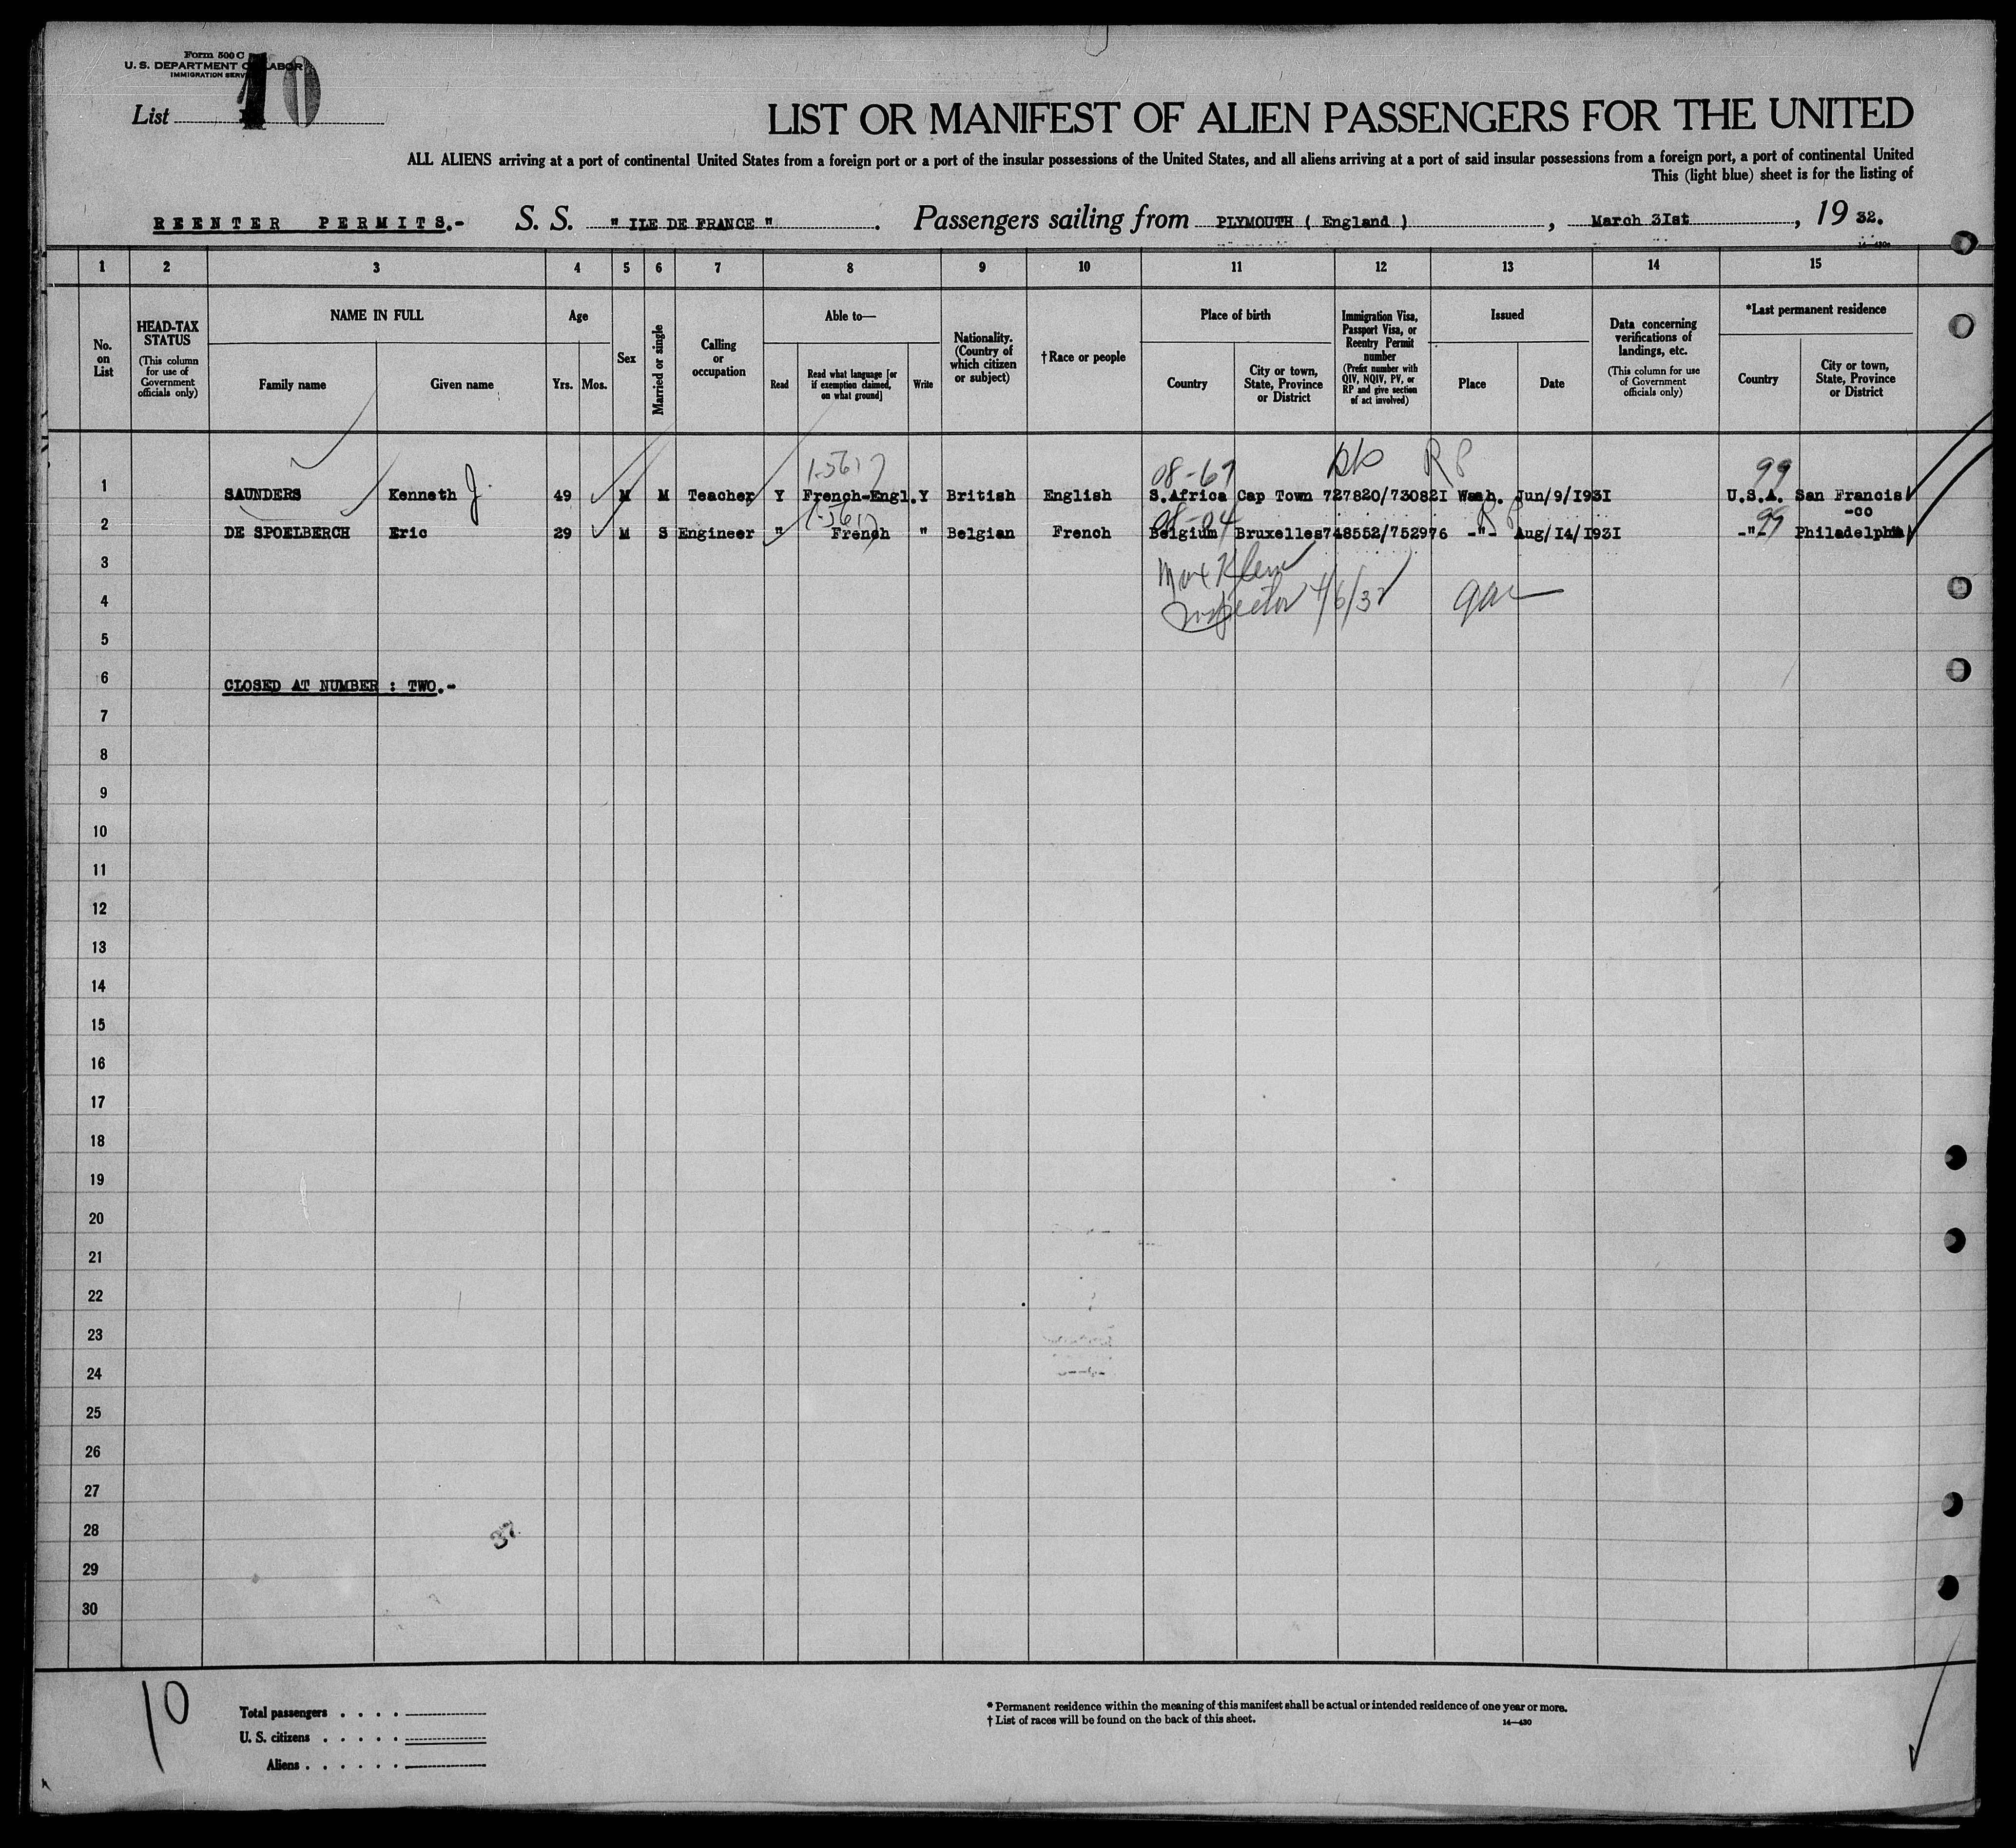 Form 500 C
U. S. DEPARTMENT OF LABOR
IMMIGRATION SERV
List 10
LIST OR MANIFEST OF ALIEN PASSENGERS FOR THE UNITED
ALL ALIENS arriving at a port of continental United States from a foreign port or a port of the insular possessions of the United States, and all aliens arriving at a port of said insular possessions from a foreign port, a port of continental United
This (light blue) sheet is for the listing of
REENTER PERMITS.- S. S. " ILE DE FRANCE ". Passengers sailing from PLYMOUTH ( England ), March 3Ist, 19 32.
14-430a
1 2 3 4 5 6 7 8 9 10 11 12 13 14 15
No. on List
HEAD-TAX STATUS (This column for use of Government officials only)
NAME IN FULL
Family name Given name
Age
Yrs. Mos.
Sex
Married or single
Calling or occupation
Able to—
Read
Read what language [or if exemption claimed, on what ground]
Write
Nationality. (Country of which citizen or subject)
† Race or people
Place of birth
Country
City or town, State, Province or District
Immigration Visa, Passport Visa, or Reentry Permit number (Prefix number with QIV, NQIV, PV, or RP and give section of act involved)
Issued
Place Date
Data concerning verifications of landings, etc. (This column for use of Government officials only)
*Last permanent residence
Country
City or town, State, Province or District
1-5617 08-67 RP 99
1 SAUNDERS Kenneth J. 49 M M Teacher Y French-Engl. Y British English S.Africa Cap Town 727820/73082I Wash. Jun/9/I93I U.S.A. San Francis
-co
1-5617 08-04 RP 99
2 DE SPOELBERCH Eric 29 M S Engineer " French " Belgian French Belgium Bruxelles 748552/752976 -"- Aug/I4/I93I -"- Philadelphia
3
Max Klein
4
Inspector 4/6/32
5
6 CLOSED AT NUMBER : TWO.-
7
8
9
10
11
12
13
14
15
16
17
18
19
20
21
22
23
24
25
26
27
28
37
29
30
10
Total passengers . . . .
U. S. citizens . . . . .
Aliens . . . . . .
* Permanent residence within the meaning of this manifest shall be actual or intended residence of one year or more.
† List of races will be found on the back of this sheet.
14-430